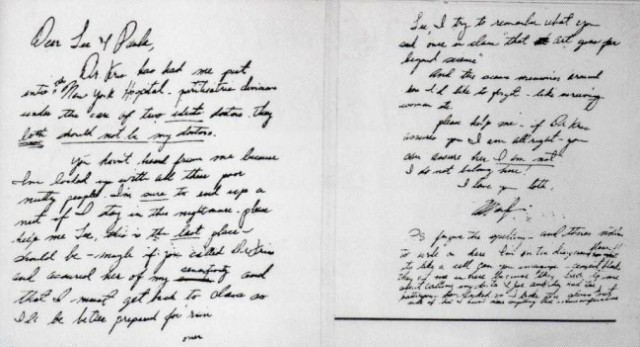 Dear Lee & Paula,
Dr. Kris has had me put
into the New York Hospital - pschiatric division
under the care of two idiot doctors. they
both should not be my doctors.
You haven't heard from me because
I'm locked up with all these poor
nutty people. I'm sure to end up a
nut if I stay in this nightmare. please
help me Lee, this is the last place
should be - maybe if you called Dr Kris
and assured her of my sensitivity and
that I must get back to class so
I'll be better prepared for rain
over
Lee, I try to remember what you
said once in class "that art goes far
beyond science"
And the memories around
here I'd like to forget - like screaming
women etc.
please help me - if Dr Kris
assures you I am all right - you
can assure her I am not
I do not belong here!
I love you both,
P.S. forgive the spelling - and theres nothing
to write on here. I'm on the dangerous floor!
its like a cell. can you imagine - cement blocks
they put me in here because they lied to me
about calling my